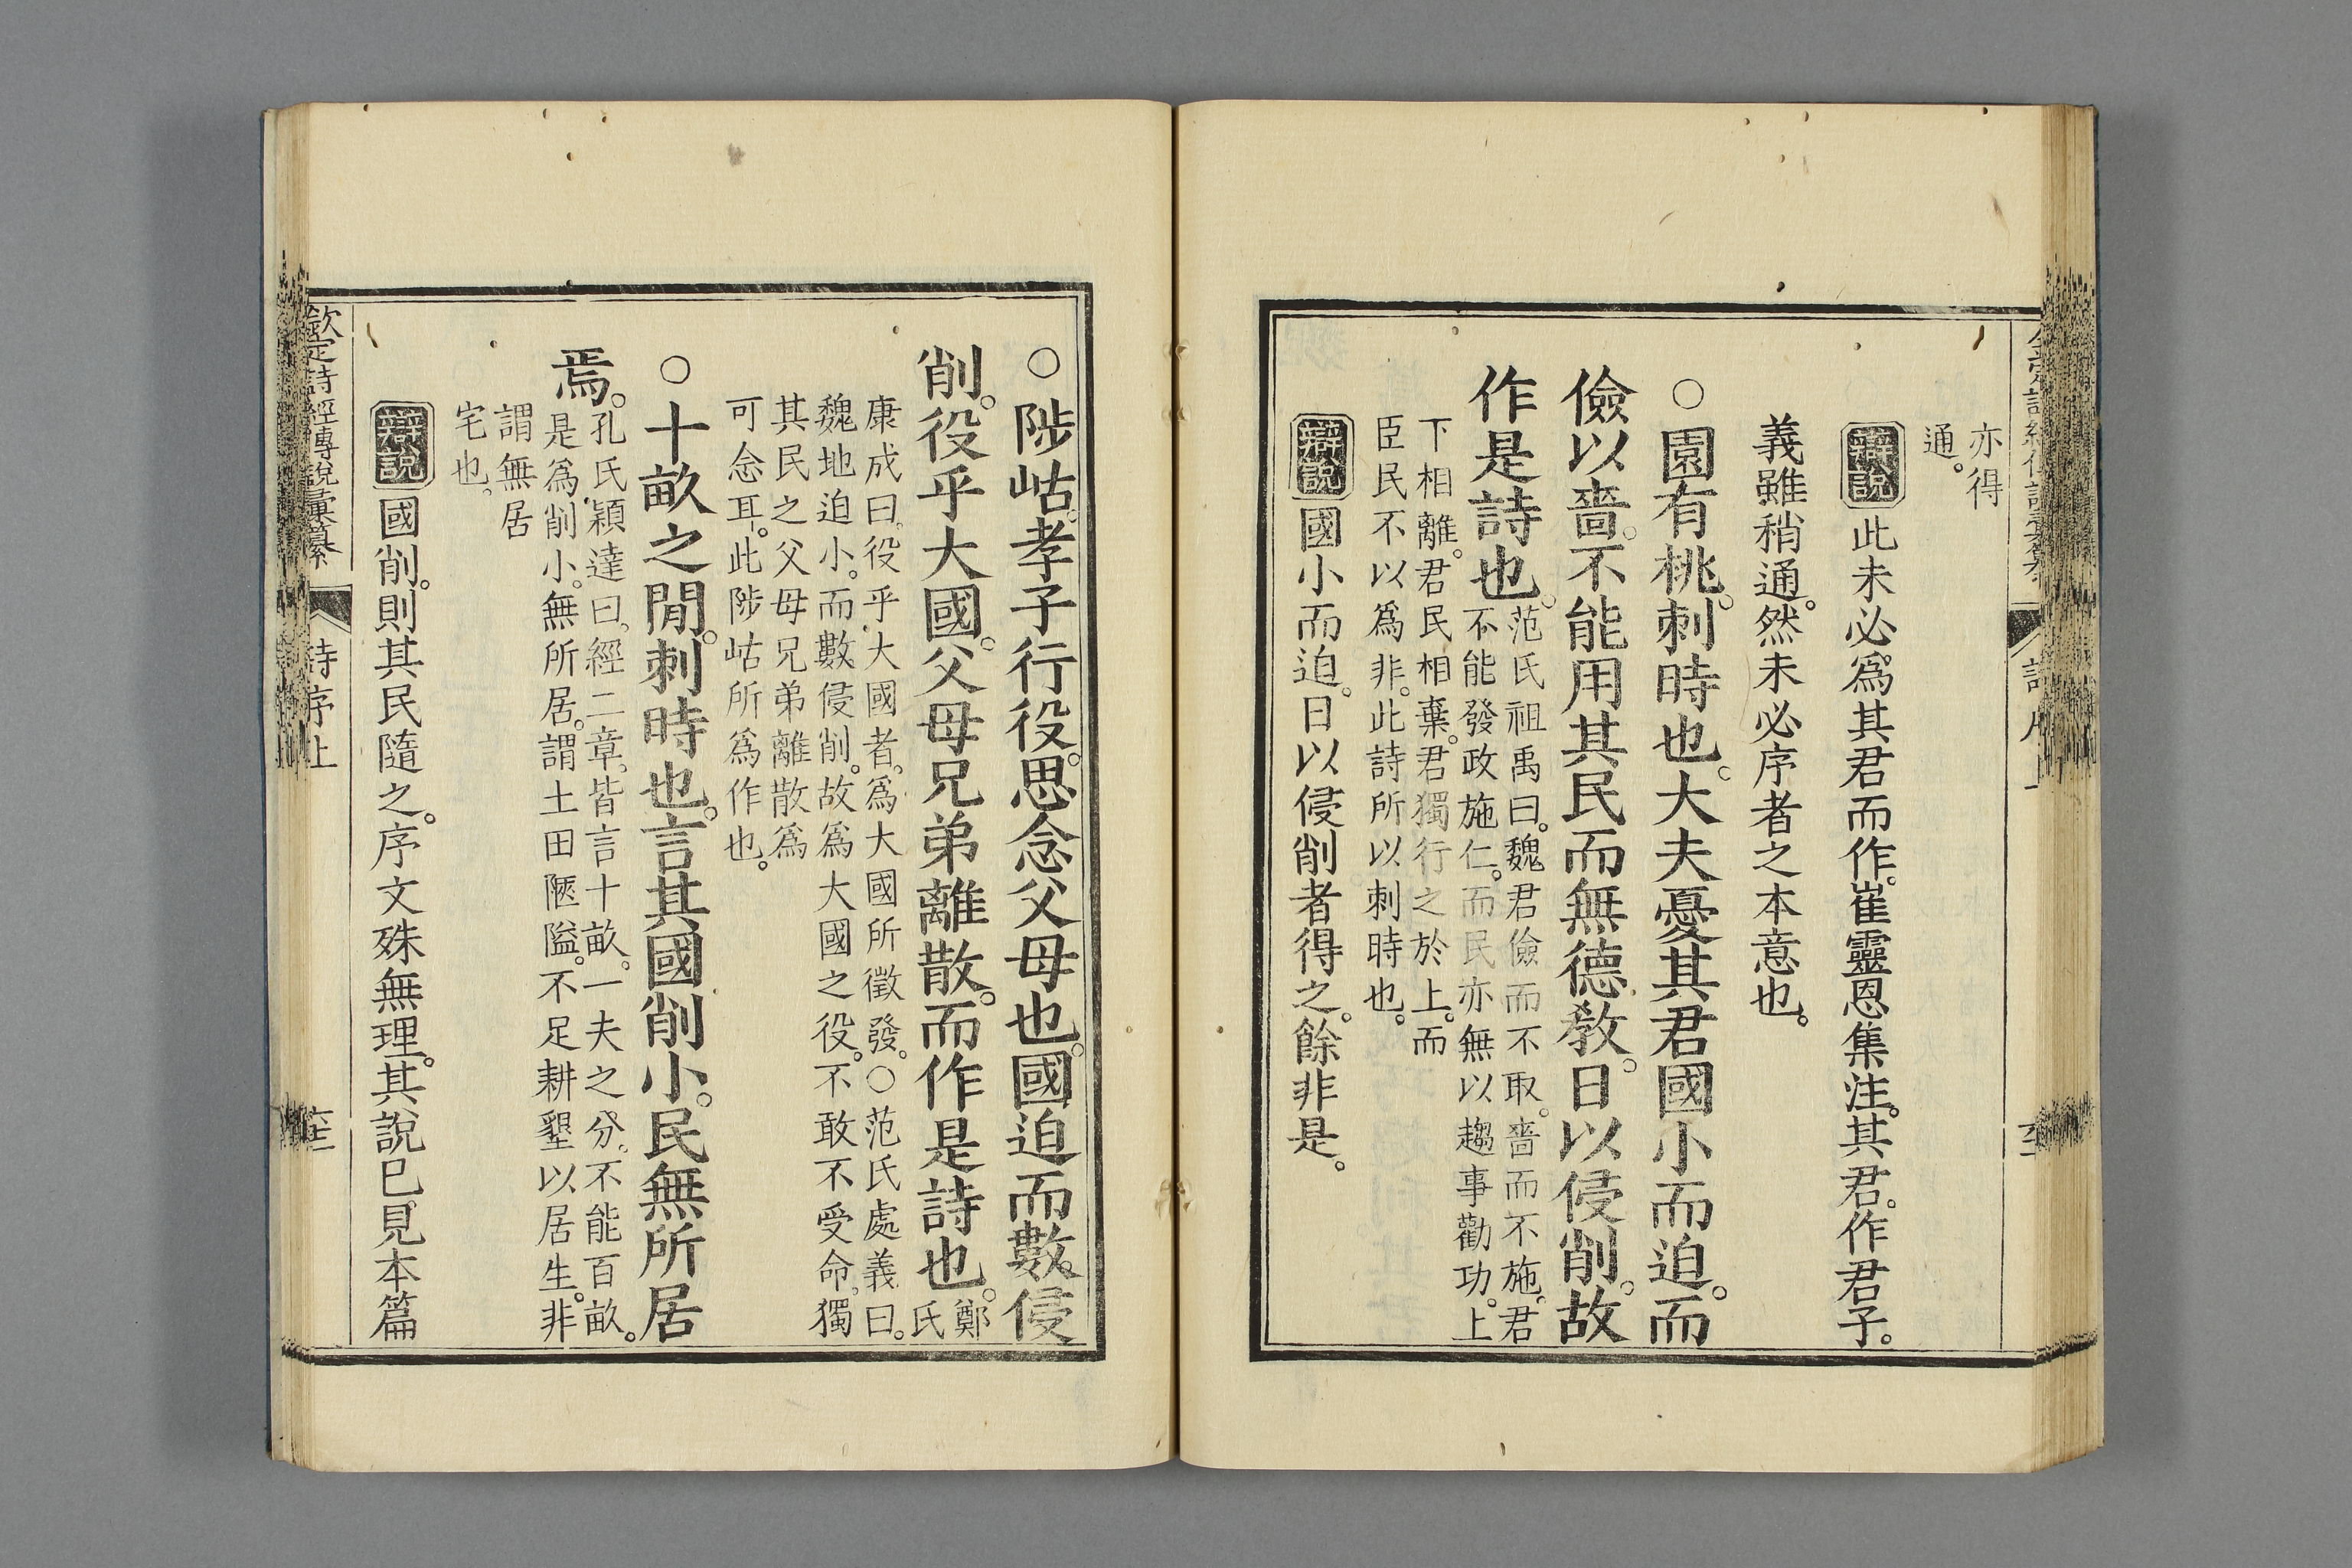 亦得
通。
辯說 此未必爲其君而作。崔靈恩集注。其君。作君子。
義雖稍通。然未必序者之本意也。
○園有桃。刺時也。大夫憂其君國小而迫。而
儉以嗇。不能用其民而無德敎。日以侵削。故
作是詩也。
范氏祖禹曰。魏君儉而不取。嗇而不施。君
不能發政施仁。而民亦無以趨事勸功。上
下相離。君民相棄。君獨行之於上。而
臣民不以爲非。此詩所以刺時也。
辯說 國小而迫。日以侵削者得之。餘非是。
○陟岵。孝子行役。思念父母也。國迫而數侵
削。役乎大國。父母兄弟離散。而作是詩也。
鄭
氏
康成曰。役乎大國者。爲大國所徵發。○范氏處義曰。
魏地迫小。而數侵削。故爲大國之役。不敢不受命。獨
其民之父母兄弟離散爲
可念耳。此陟岵所爲作也。
○十畝之閒。刺時也。言其國削小。民無所居
焉。
孔氏穎達曰。經二章。皆言十畝。一夫之分。不能百畝。
是爲削小。無所居。謂土田陿隘。不足耕墾以居生。非
謂無居
宅也。
辯說 國削。則其民隨之。序文殊無理。其說已見本篇
欽定詩經傳說彙纂 詩序上